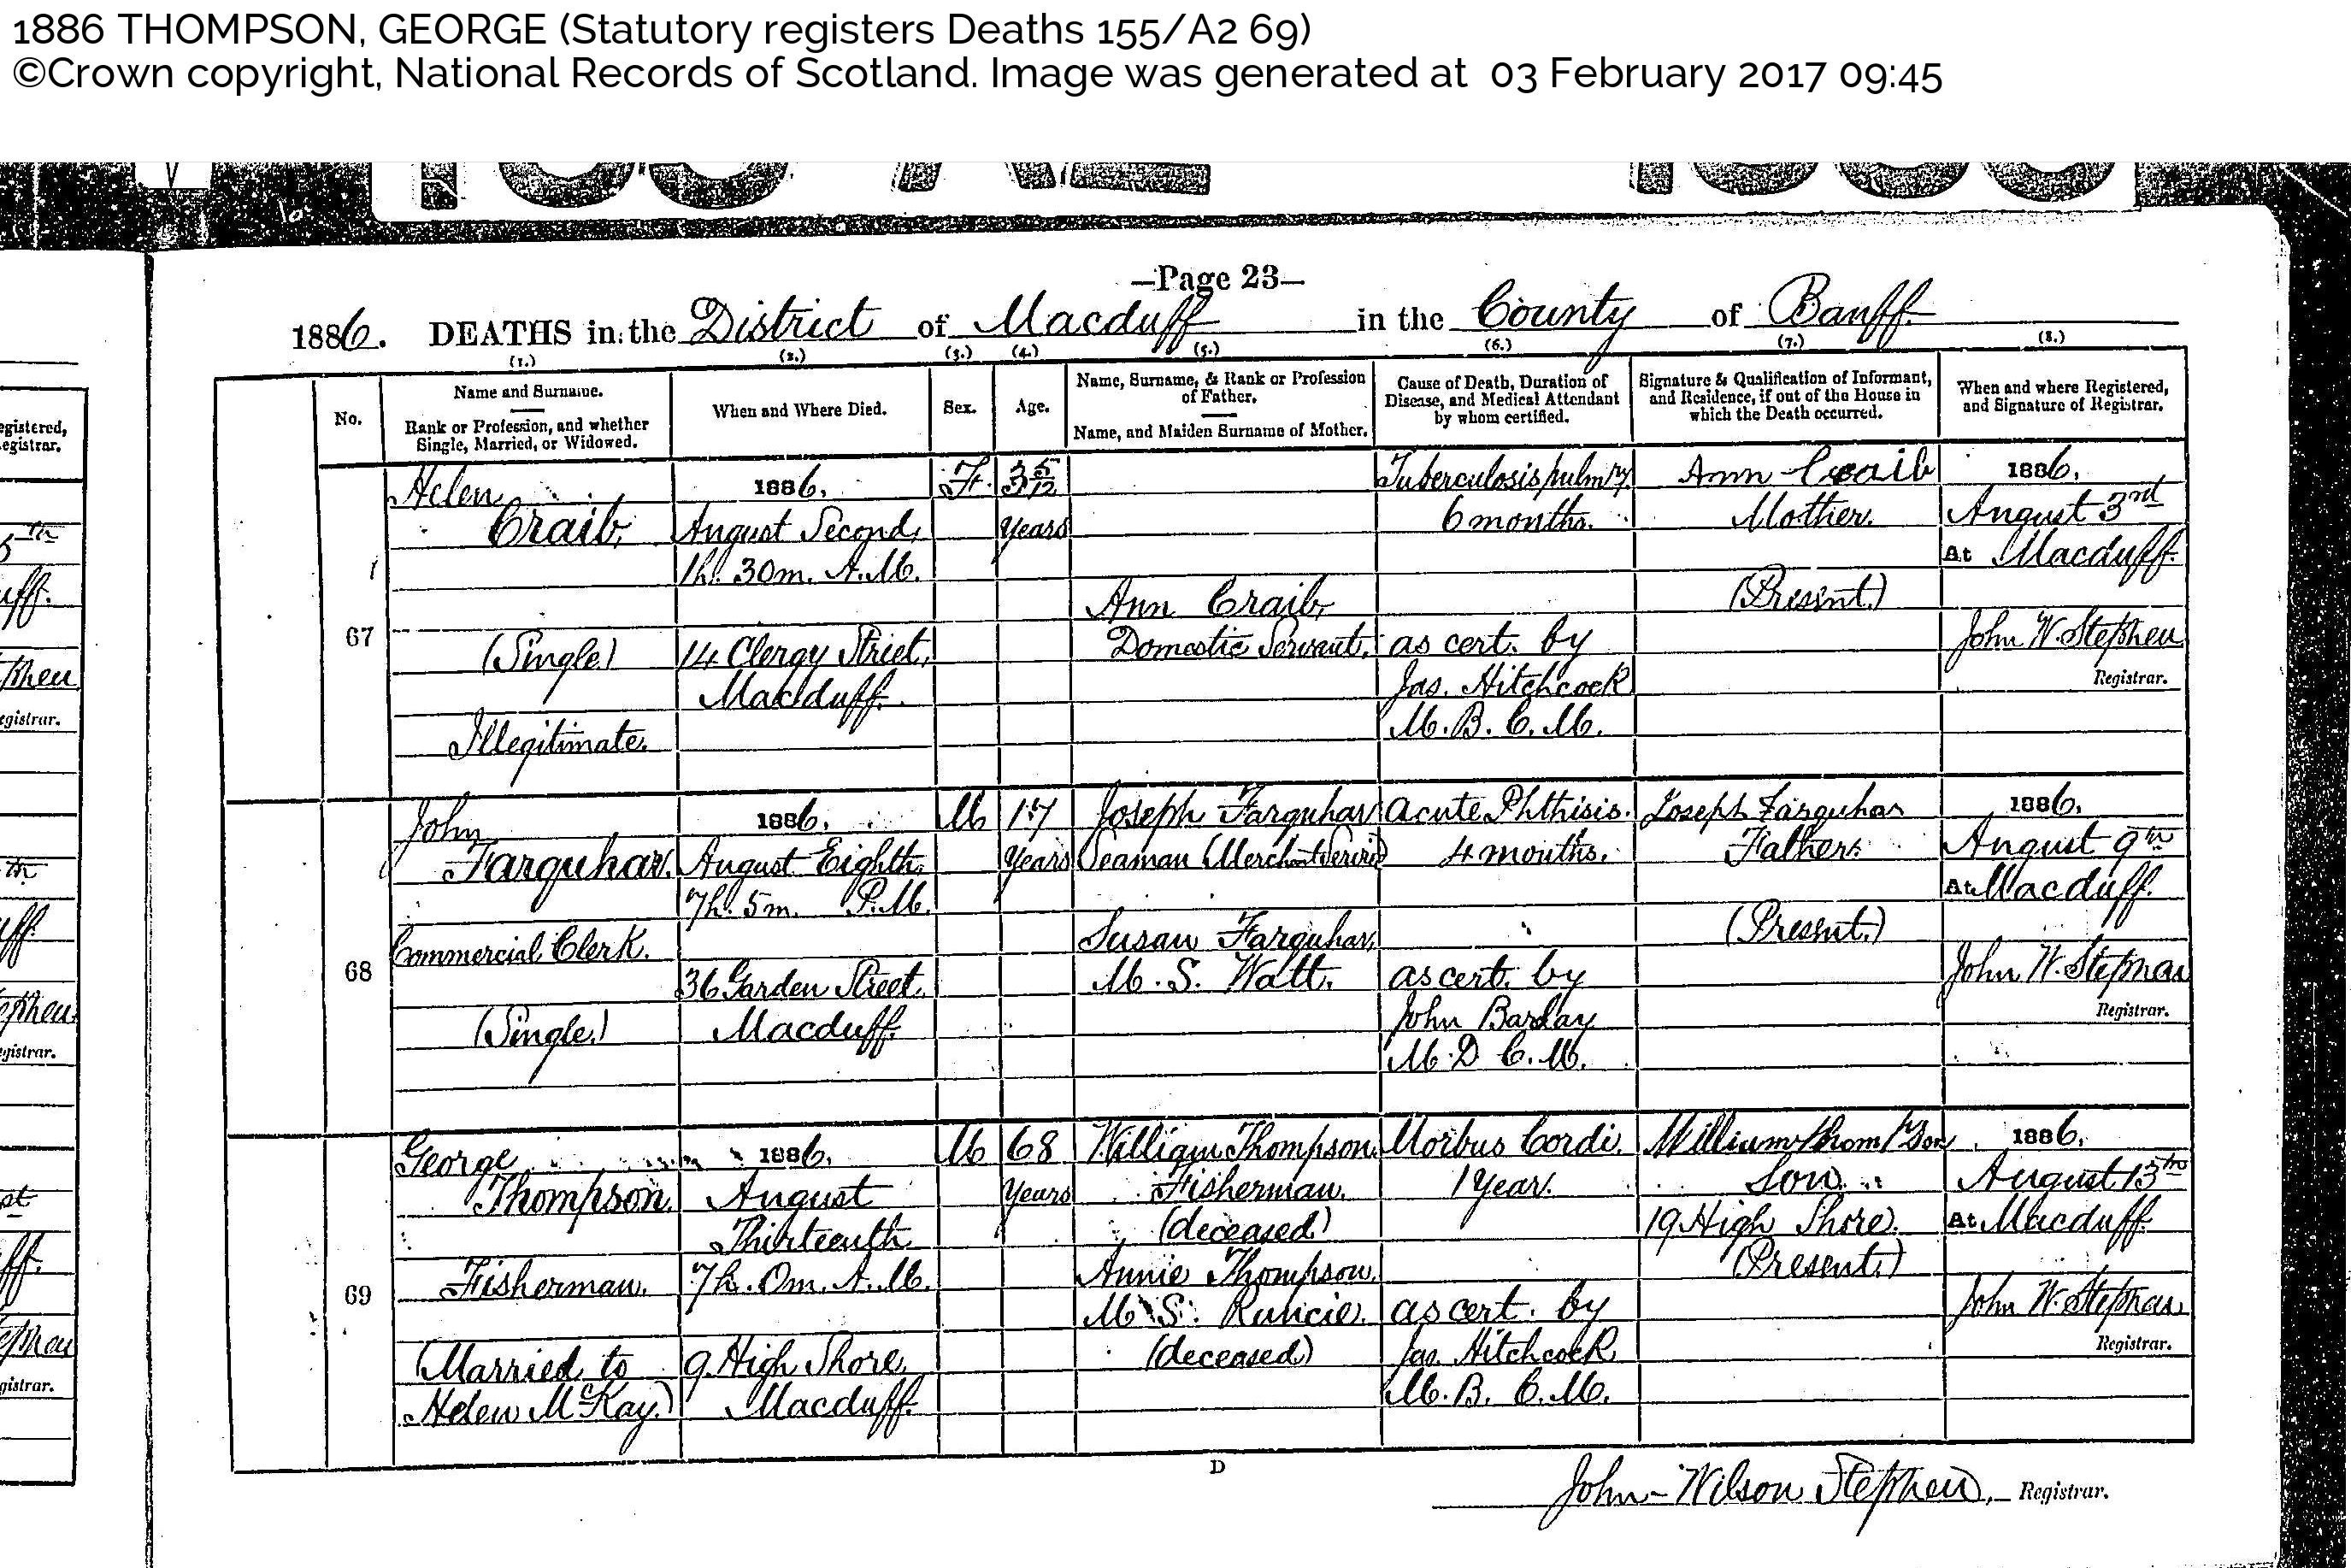 1886 THOMPSON, GEORGE (Statutory registers Deaths 155/A2 69)
©Crown copyright, National Records of Scotland. Image was generated at 03 February 2017 09:45
—Page 23—
1886. DEATHS in the District of Macduff in the County of Banff.
(1.) (2.) (3.) (4.) (5.) (6.) (7.) (8.)
No.
Name and Surname.
Rank or Profession, and whether
Single, Married, or Widowed.
When and Where Died.
Sex.
Age.
Name, Surname, & Rank or Profession
of Father.
Name, and Maiden Surname of Mother.
Cause of Death, Duration of
Disease, and Medical Attendant
by whom certified.
Signature & Qualification of Informant,
and Residence, if out of the House in
which the Death occurred.
When and where Registered,
and Signature of Registrar.
67
Helen
Craib,
(Single)
Illegitimate.
1886,
August Second,
1h. 30m. A.M.
14 Clergy Street,
Macduff.
F.
3 5/12
Years
Ann Craib,
Domestic Servant.
Tuberculosis pulmry.
6 months.
as cert. by
Jas. Hitchcock
M.B. C.M.
Ann Craib
Mother.
(Present.)
1886,
August 3rd
At Macduff.
John W. Stephen
Registrar.
68
John
Farquhar.
Commercial Clerk.
(Single.)
1886,
August Eighth,
7h. 5m. P.M.
36 Garden Street,
Macduff.
M
17
Years
Joseph Farquhar
Seaman (Merchant Service)
Susan Farquhar,
M.S. Watt.
Acute Phthisis.
4 months.
as cert. by
John Barclay
M.D C.M.
Joseph Farquhar
Father.
(Present.)
1886,
August 9th
At Macduff.
John W. Stephen
Registrar.
69
George
Thompson.
Fisherman.
(Married to
Helen McKay.)
1886,
August
Thirteenth
7h. 0m. A.M.
9. High Shore,
Macduff.
M
68
Years
William Thompson.
Fisherman.
(deceased)
Annie Thompson.
M.S. Runcie.
(deceased)
Morbus Cordi.
1 Year.
as cert. by
Jas. Hitchcock
M.B. C.M.
William Thompson
Son.
19 High Shore.
(Present.)
1886,
August 13th
At Macduff.
John W. Stephen
Registrar.
D
John Wilson Stephen, Registrar.